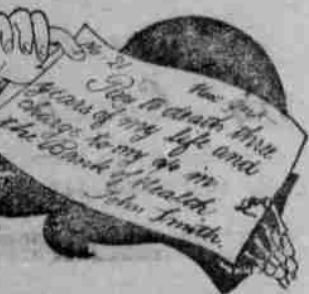 No 21
Pay to death three
years of my life and
charge to my a/c in
the Bank of Health
John Smith.